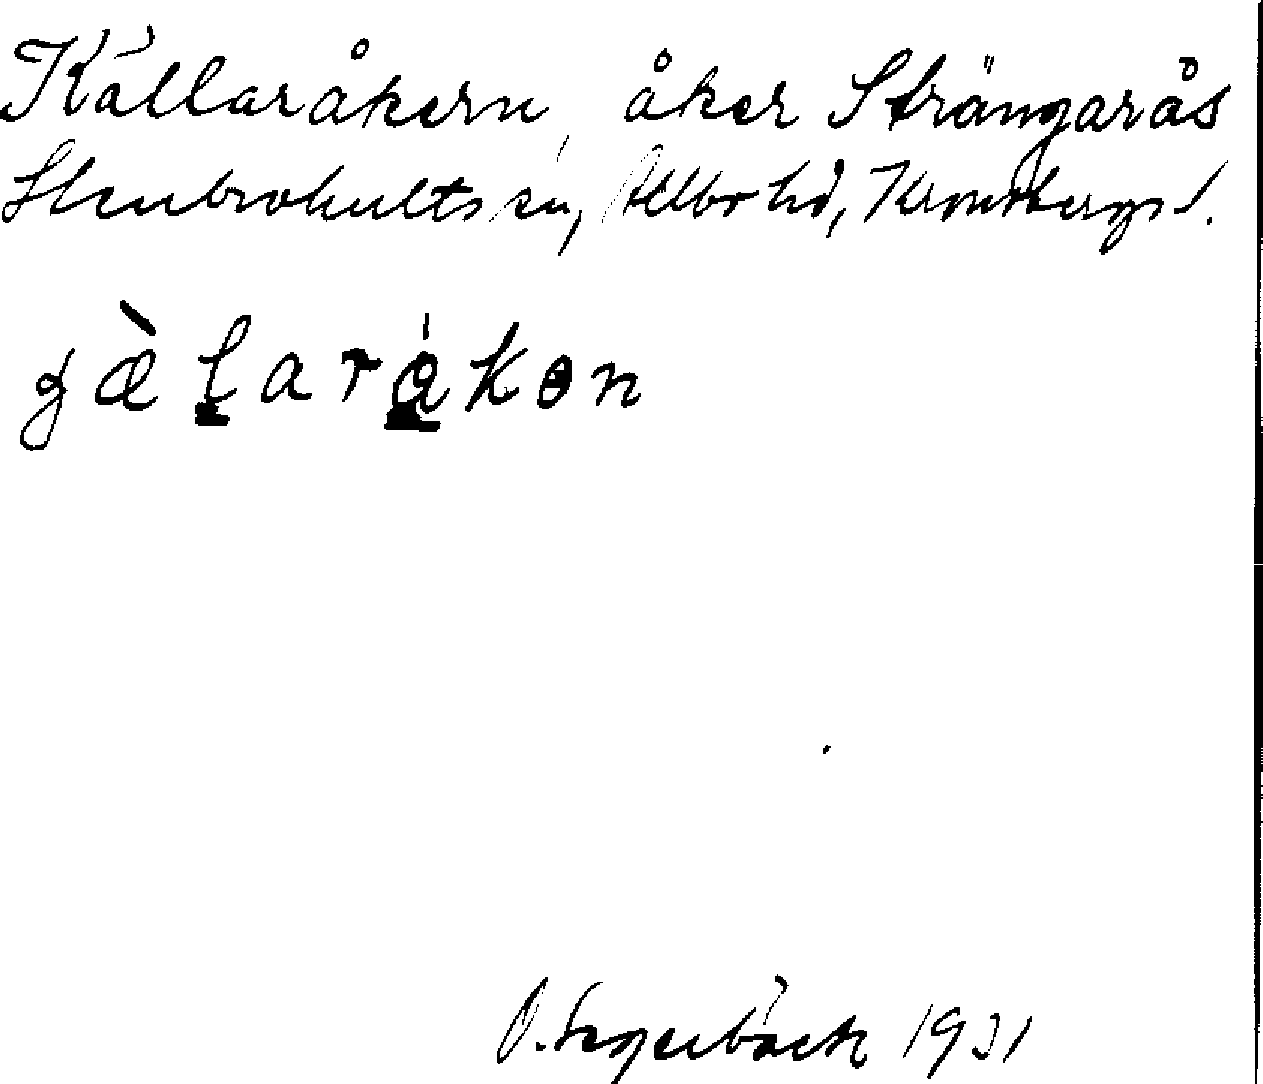 Källaråkern, åker Strängarås
Stenbrohults sn, Allbo hd, Kronobergs l.
gæ̀laråkən
O. Segerbäck 1931